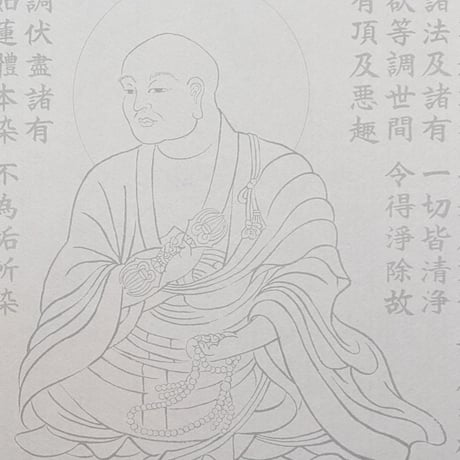 諸法及諸有 一切皆清淨
欲等調世間 令得淨除故
有頂及悪趣
調伏盡諸有
如蓮體本染 不為垢所染